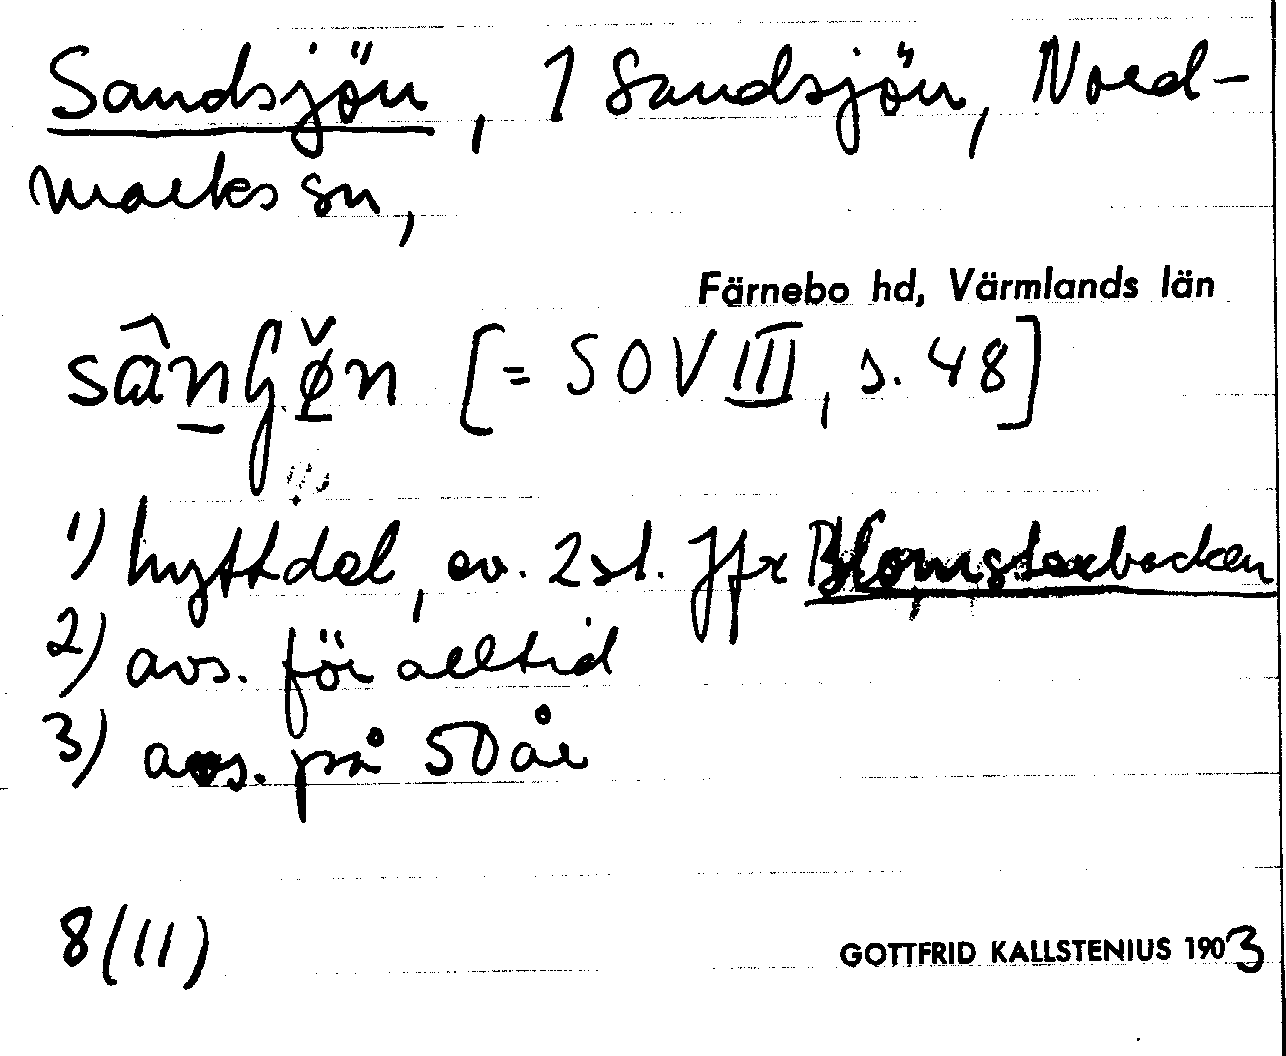 Sandsjön, 1 Sandsjön, Nord-
marks sn,
Färnebo hd, Värmlands län
[= SOV III, s. 48]
1) hyttdel, av. 2 st. Jfr Blomsterbacken
2) avs. för alltid
3) avs. på 50 år
8 (11)
GOTTFRID KALLSTENIUS 1903